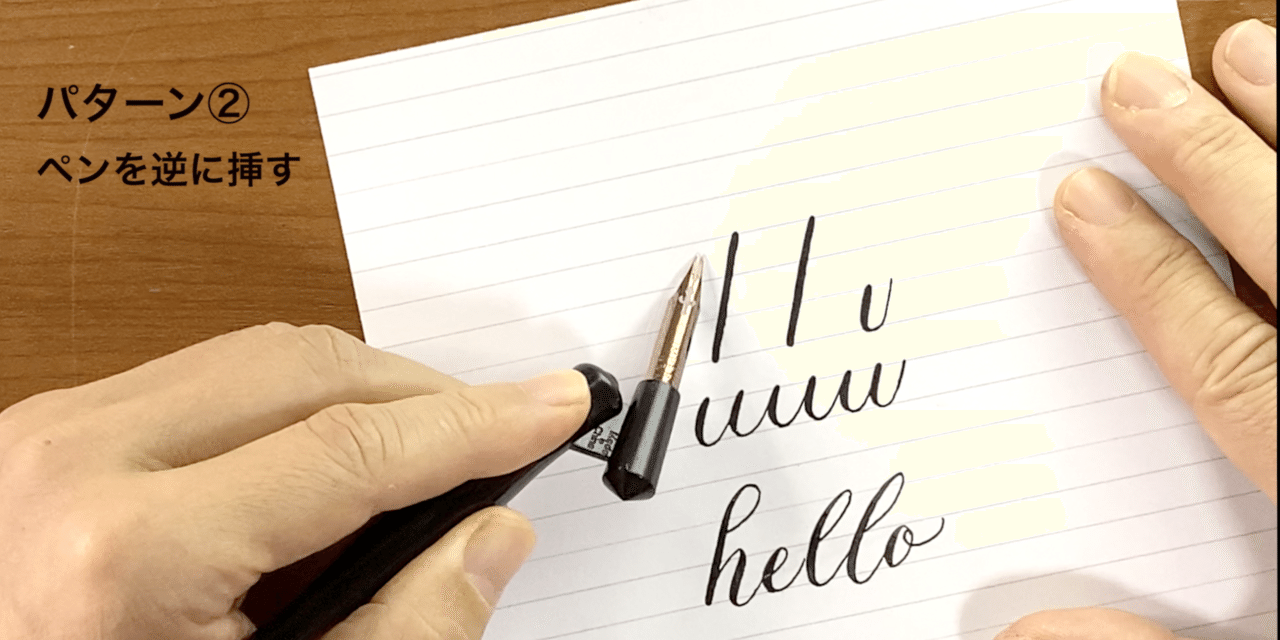 パターン②
ペンを逆に挿す
l l u
uuu
hello